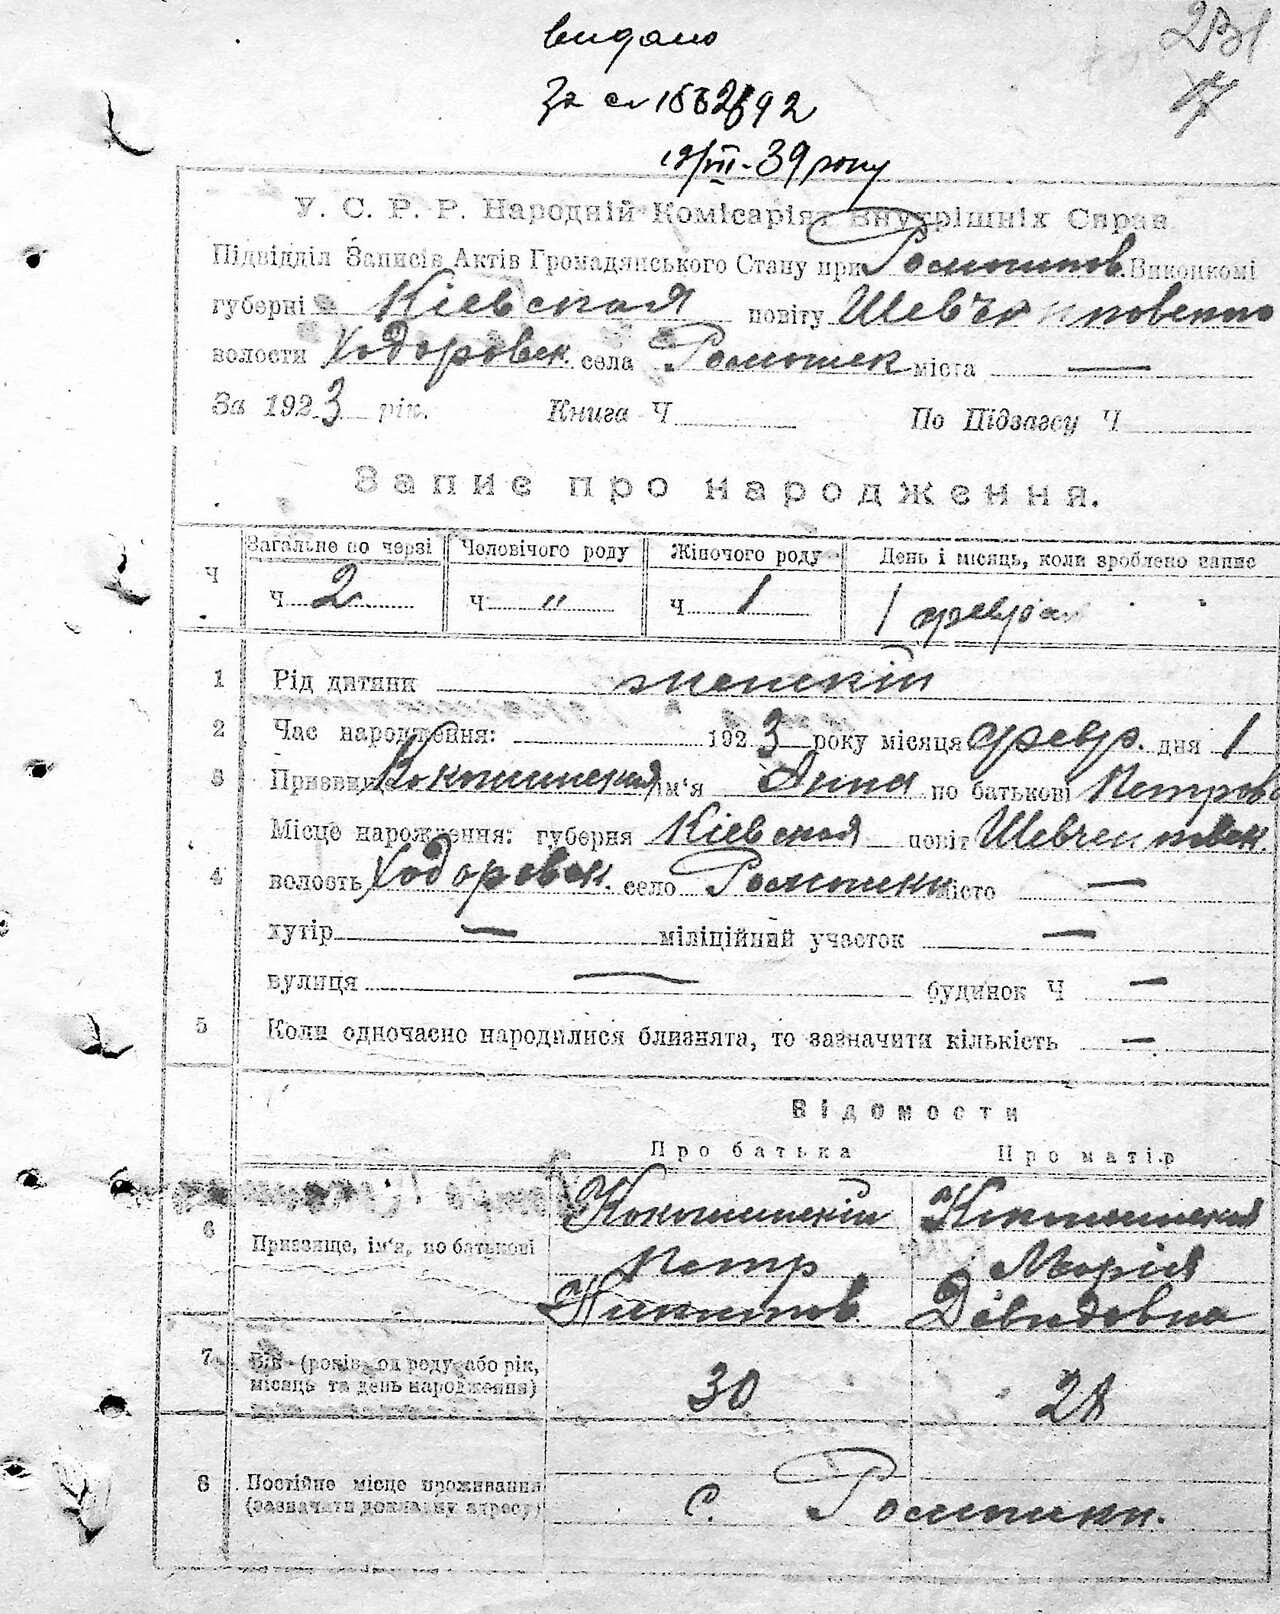 231
видано
7
за сл 1562892
19/VII-39 року
У. С. Р. Р. Народній Комісаріят Внутрішніх Справ
Підвідділ Записів Актів Громадянського Стану при Ромашков. Виконкомі
губерні Кіевская повіту Шевченковского
волости Ходоровск. села Ромашек міста —
За 1923 рік. Книга Ч По Підзагсу Ч
Запис про народження.
Ч Загальне по черзі Ч 2 Чоловічого роду Ч " Жіночого роду Ч 1 День і місяць, коли зроблено запис 1 феврал
1 Рід дитини женскій
2 Час народження: 1923 року місяця февр. дня 1
3 Призвище ім'я Анна по батькові Петрова
Місце нарождення: губерня Кіевская повіт Шевченковск.
4 волость Ходоровск. село Ромашки місто —
хутір — міліційний участок —
вулиця — будинок Ч —
5 Коли одночасно народилися близнята, то зазначити кількість —
Відомости
Про батька Про матір
6 Призвище, ім'я, по батькові
Петр Марія
Никитов. Давидовна
7 Вік (років од роду або рік, місяць та день народження) 30 28
8 Постійне місце проживання (зазначити докладну адресу) с. Ромашки.